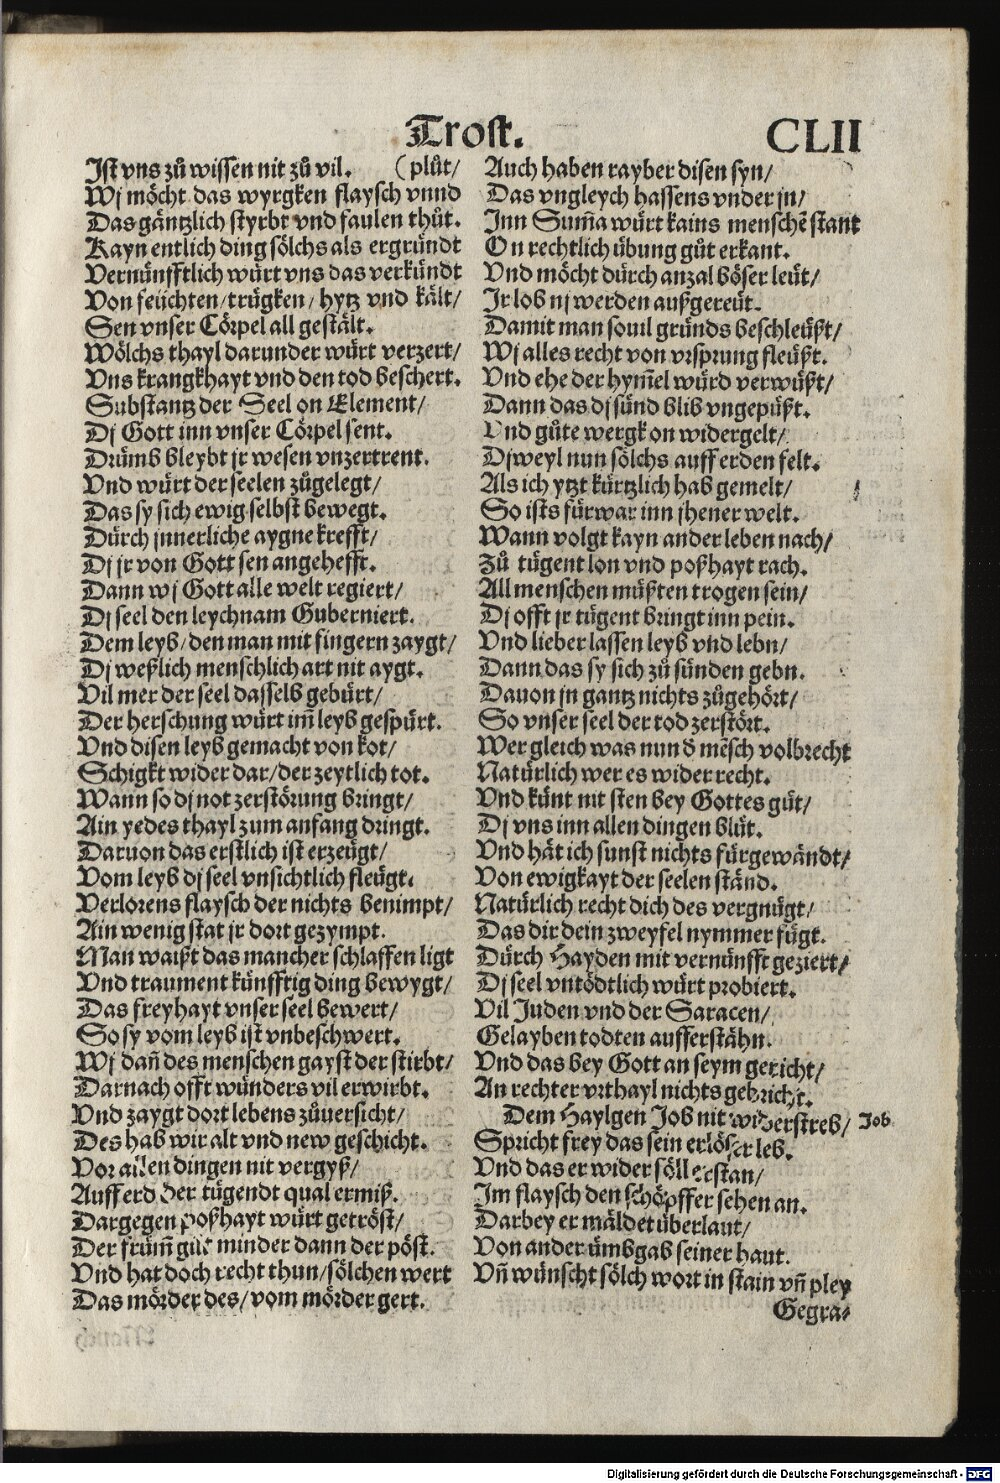 Trost.
CLII
Ist vns zů wissen nit zů vil. (plůt/
Wj möcht das wyrgken flaysch vnnd
Das gäntzlich styrbt vnd faulen thůt.
Kayn entlich ding sölchs als ergründt
Vernünfftlich würt vns das verkündt
Von feüchten/ trügken/ hytz vnd kält/
Sen vnser Cörpel all gestält.
Wölchs thayl darunder würt verzert/
Vns krangkhayt vnd den tod beschert.
Substantz der Seel on Element/
Dj Gott inn vnser Cörpel sent.
Drümb bleybt jr wesen vnzertrent.
Vnd würt der seelen zůgelegt/
Das sy sich ewig selbst bewegt.
Dürch jnnerliche aygne krefft/
Dj jr von Gott sen angehefft.
Dann wj Gott alle welt regiert/
Dj seel den leychnam Guberniert.
Dem leyb/ den man mit fingern zaygt/
Dj weßlich menschlich art nit aygt.
Vil mer der seel dasselb gebürt/
Der herschung würt im̃ leyb gespürt.
Vnd disen leyb gemacht von kot/
Schigkt wider dar/ der zeytlich tot.
Wann so dj not zerstörung bringt/
Ain yedes thayl zum anfang dringt.
Daruon das erstlich ist erzeügt/
Vom leyb dj seel vnsichtlich fleügt.
Verlorens flaysch der nichts benimpt/
Ain wenig stat jr dort gezympt.
Man waißt das mancher schlaffen ligt
Vnd traument künfftig ding bewygt/
Das freyhayt vnser seel bewert/
So sy vom leyb ist vnbeschwert.
Wj dañ des menschen gayst der stirbt/
Darnach offt wünders vil erwirbt.
Vnd zaygt dort lebens zůuersicht/
Des hab wir alt vnd new geschicht.
Vor allen dingen nit vergyß/
Auff erd der tügendt qual ermiß.
Dargegen poßhayt würt getröst/
Der früm̃ gilt minder dann der pöst.
Vnd hat doch recht thun/ sölchen wert
Das mörder des/ vom mörder gert.
Auch haben rayber disen syn/
Das vngleych hassens vnder jn/
Inn Sum̃a würt kains menschẽ stant
On rechtlich übung gůt erkant.
Vnd möcht dürch anzal böser leüt/
Ir lob nj werden außgereüt.
Damit man souil gründs beschleüßt/
Wj alles recht von vrsprung fleüßt.
Vnd ehe der hym̃el würd verwüßt/
Dann das dj sünd blib vngepüßt.
Vnd gůte wergk on widergelt/
Djweyl nun sölchs auff erden felt.
Als ich ytzt kürtzlich hab gemelt/
So ists fürwar inn jhener welt.
Wann volgt kayn ander leben nach/
Zů tügent lon vnd poßhayt rach.
All menschen müßten trogen sein/
Dj offt jr tügent bringt inn pein.
Vnd lieber lassen leyb vnd lebn/
Dann das sy sich zů sünden gebn.
Dauon jn gantz nichts zůgehört/
So vnser seel der tod zerstört.
Wer gleich was nun d mẽsch volbrecht
Natürlich wer es wider recht.
Vnd künt nit sten bey Gottes güt/
Dj vns inn allen dingen blüt.
Vnd hät ich sunst nichts fürgewändt/
Von ewigkayt der seelen ständ.
Natürlich recht dich des vergnügt/
Das dir dein zweyfel nymmer fügt.
Dürch Hayden mit vernünfft geziert/
Dj seel vntödtlich würt probiert.
Vil Juden vnd der Saracen/
Gelayben todten aufferstähn.
Vnd das bey Gott an seym gericht/
An rechter vrthayl nichts gebricht.
Dem Haylgen Job nit widerstreb/
Job
Spricht frey das sein erlöser leb.
Vnd das er wider söll erstan/
Im flaysch den schöpffer sehen an.
Darbey er mäldet überlaut/
Von ander ümbgab seiner haut.
Vñ wünscht sölch wort in stain vñ pley
Gegra-
Digitalisierung gefördert durch die Deutsche Forschungsgemeinschaft - DFG